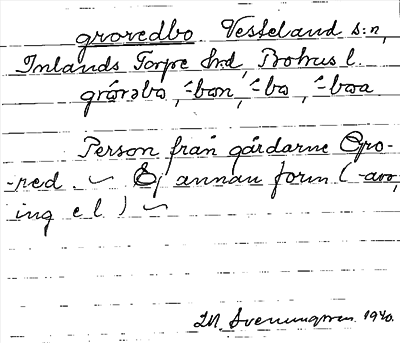 groredbo Vesteland s:n,
Inlands Torpe hd, Bohus l.
grǫ́rəbo, -́bon, -́bo, -́boa
Person från gårdarne Gro-
-red. ~ Ej annan form (-are,
ing e l) ~
1940.